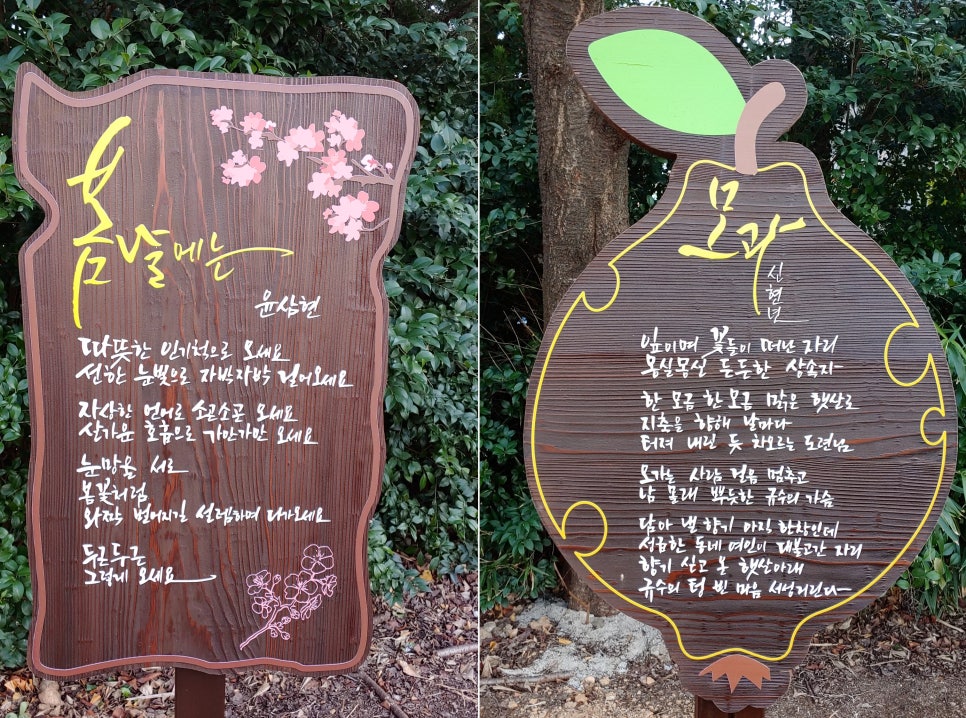 봄날에는
윤삼현
따뜻한 인기척으로 오세요
선한 눈빛으로 자박자박 걸어오세요
자상한 언어로 소곤소곤 오세요
살가운 호흡으로 가만가만 오세요
눈망울 서로
봄꽃처럼
와짝 벌어지길 설렘하며 다가오세요
두근두근
그렇게 오세요
모과
신현년
잎이며 꽃들이 떠난 자리
몽실몽실 든든한 상속자
한 모금 한 모금 맑은 햇살로
지축을 향해 날마다
터져 내린 듯 차오르는 도련님
오가는 사람 걸음 멈추고
남 몰래 뿌듯한 규수의 가슴
담아 낼 향기 아직 한창인데
성급한 동네 여인이 대봉고간 자리
향기 싣고 온 햇살아래
규수의 텅 빈 마음 서성거린다